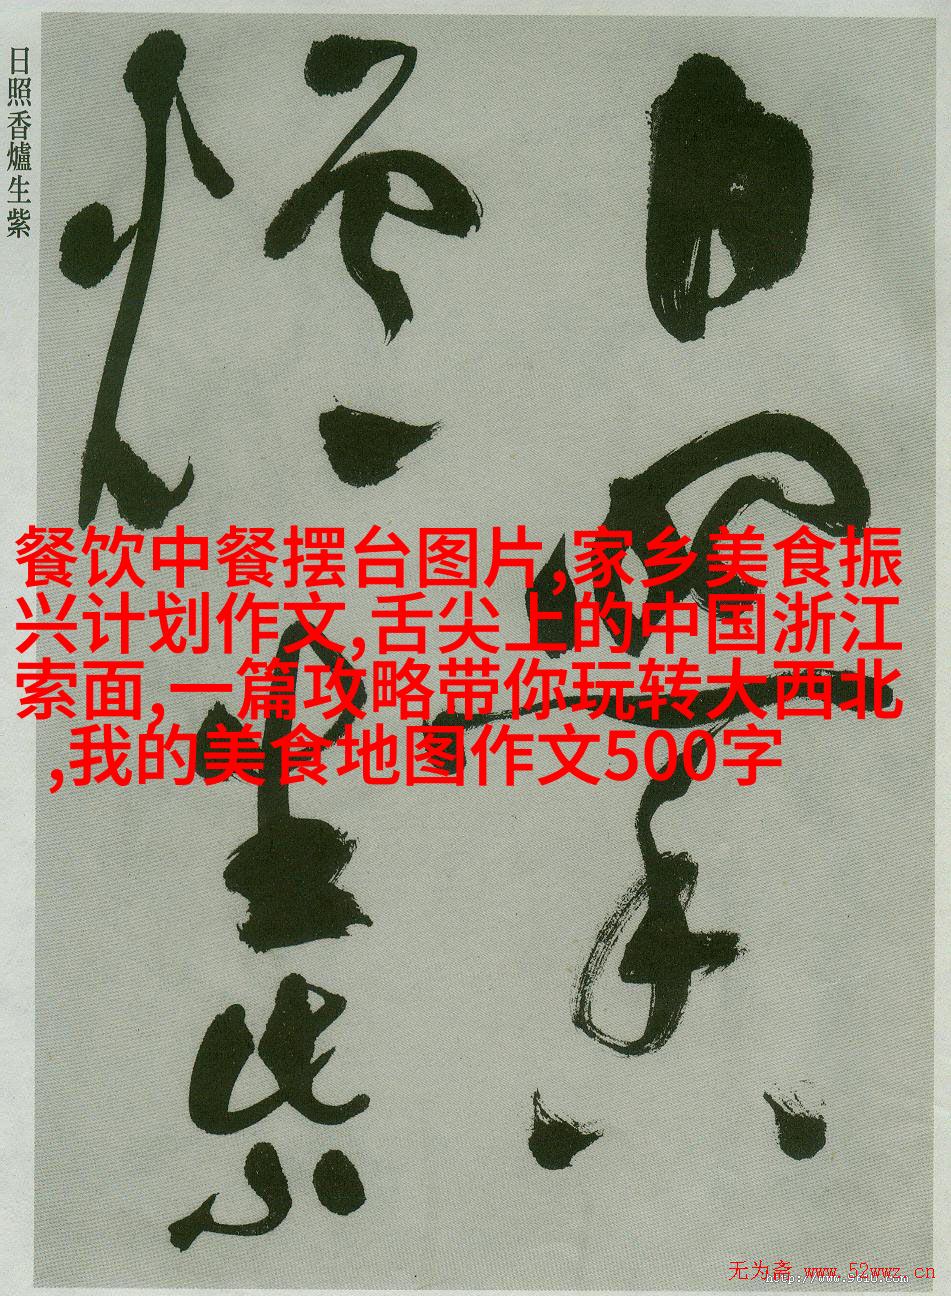 日照香爐生紫
餐饮中餐摆台图片,家乡美食振
兴计划作文,舌尖上的中国浙江
索面,一篇攻略带你玩转大西北
,我的美食地图作文500字
日照香
爐生紫
无为斋 www.52wwz.cn
http://www.9610.com